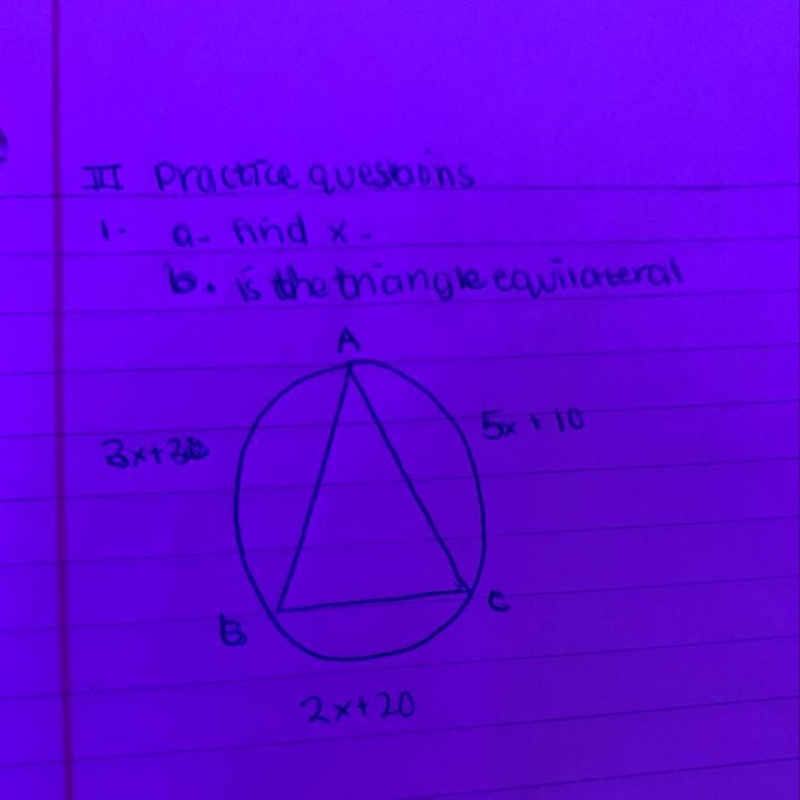 III Practice questions
1. a- find x-
b. is the triangle equilateral
A
5x + 10
3x+30
C
B
2x+20